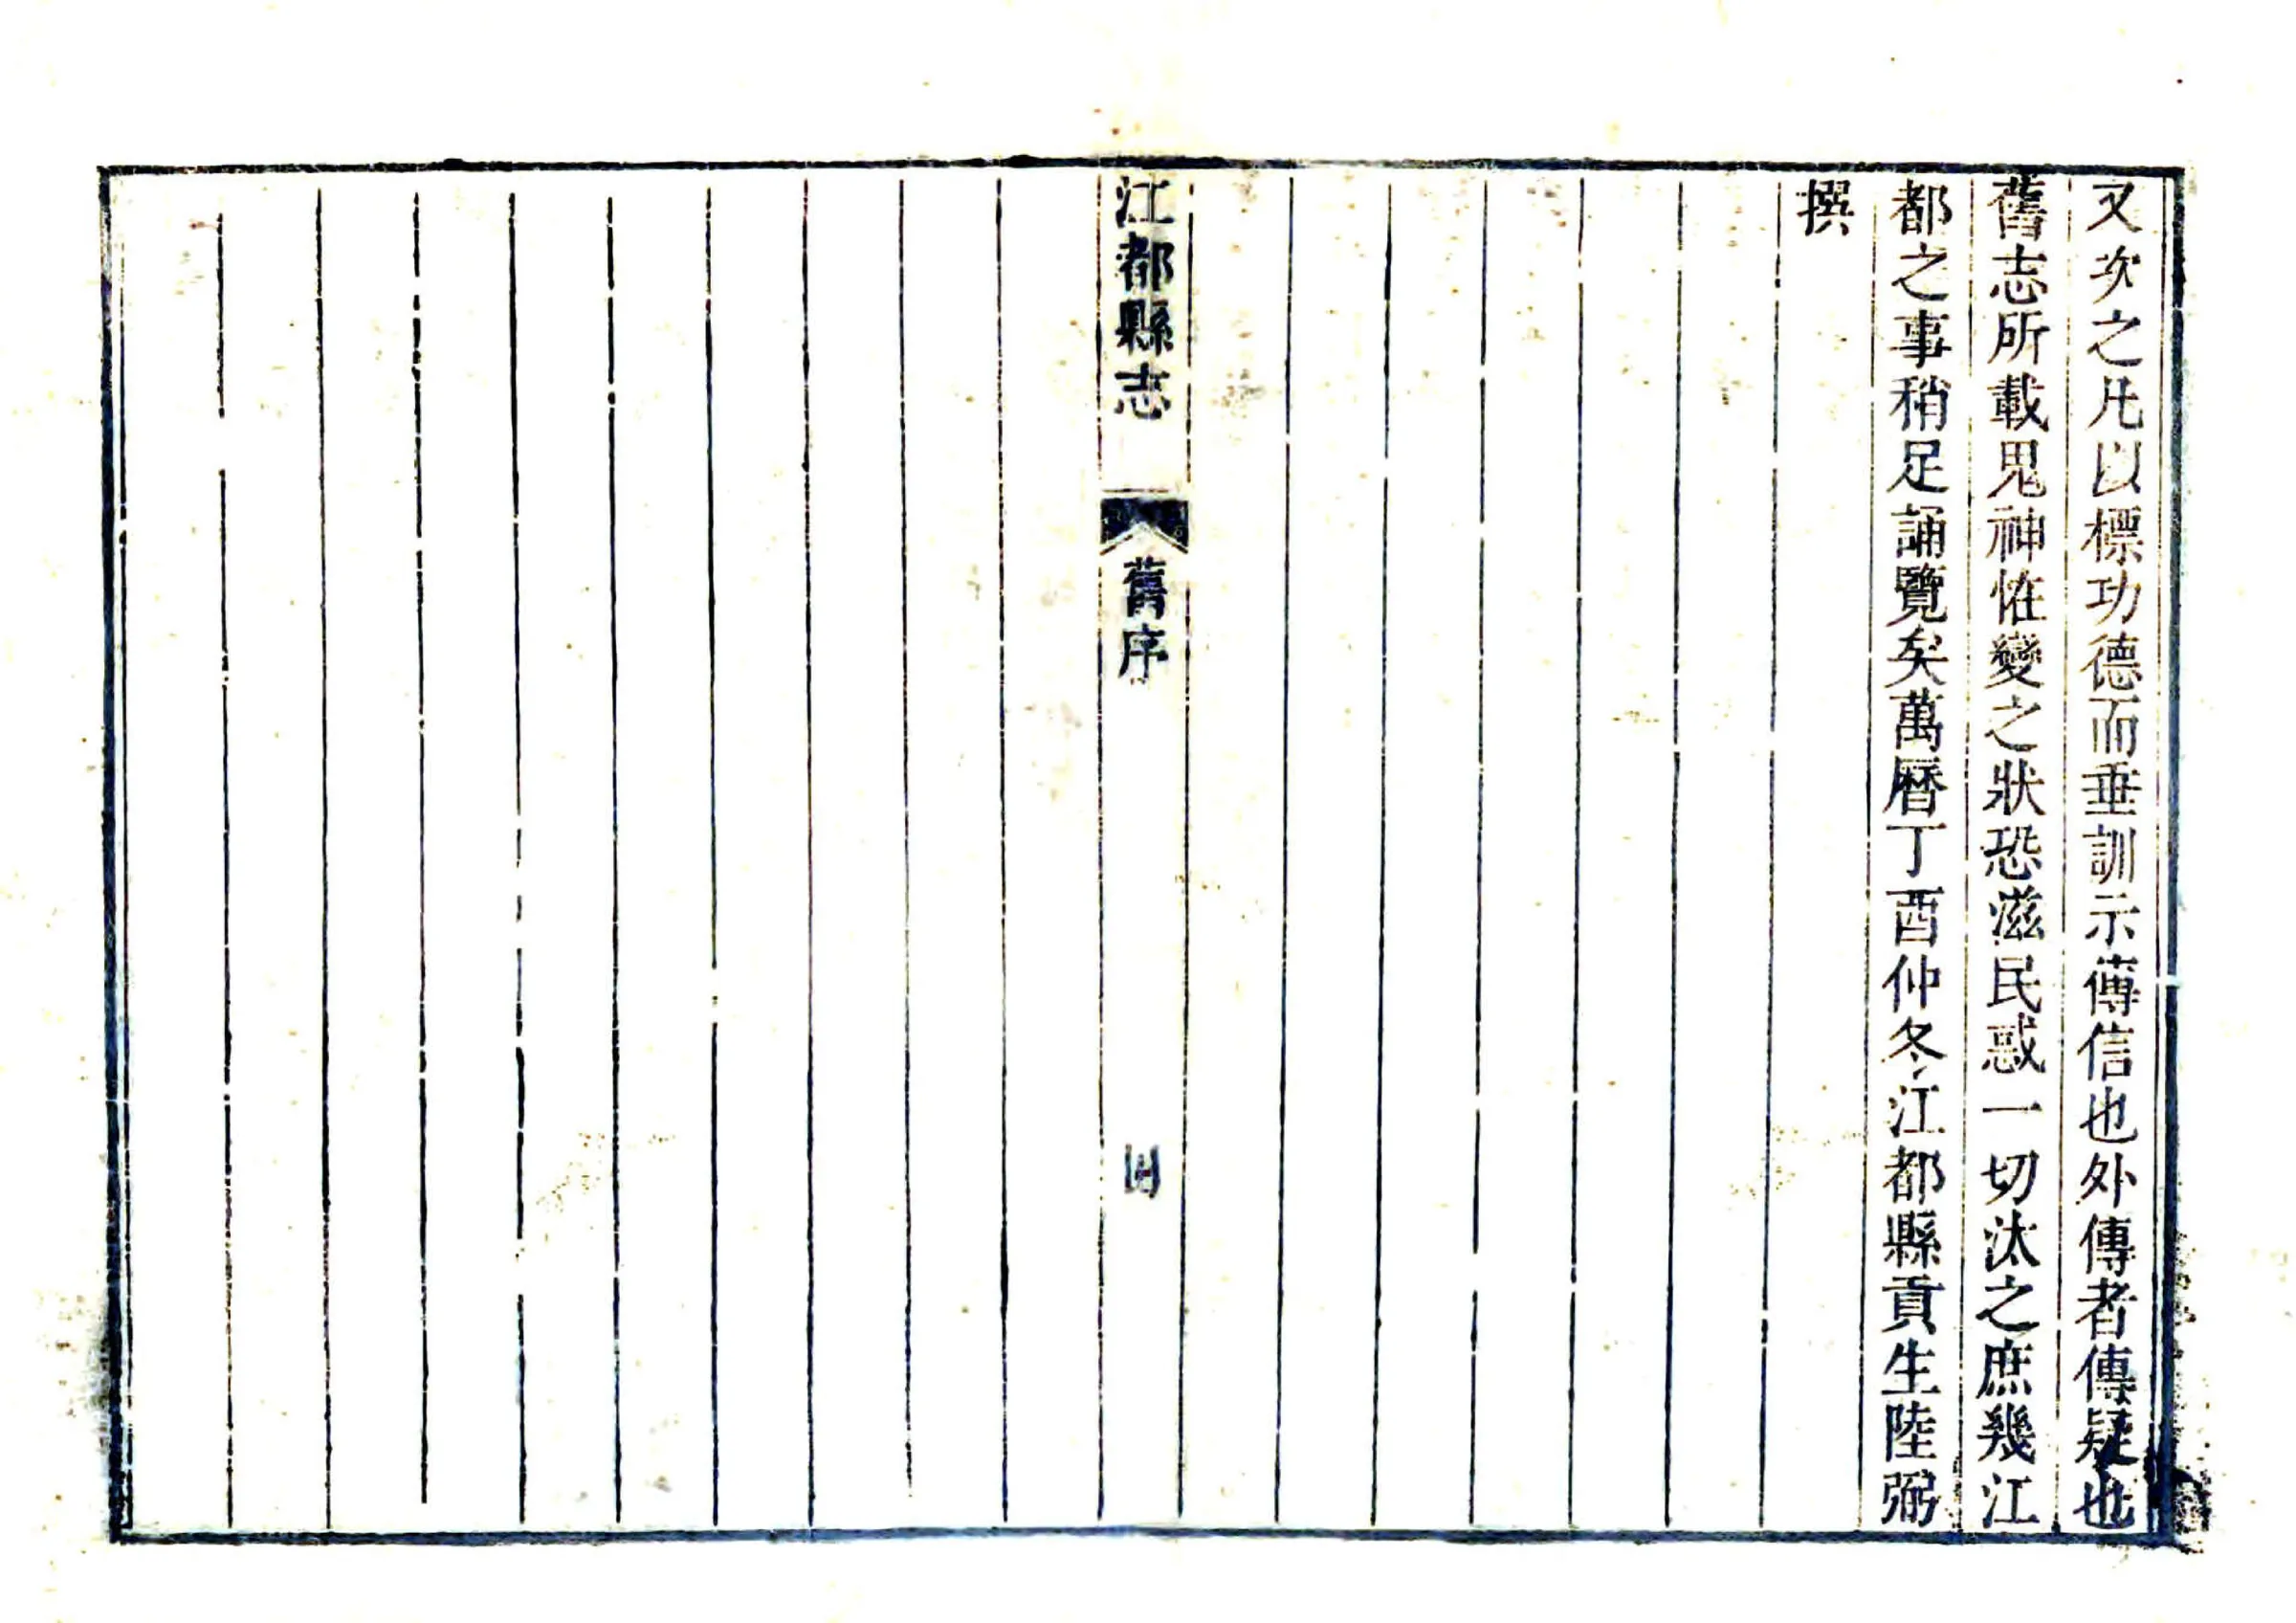 又次之凡以標功德而垂訓示傳信也外傳者傳疑也
舊志所載鬼神恠變之狀恐滋民惑一切汰之庶幾江
都之事稍足誦覽矣萬曆丁酉仲冬江都縣貢生陸弼
撰
江都縣志
舊序
四